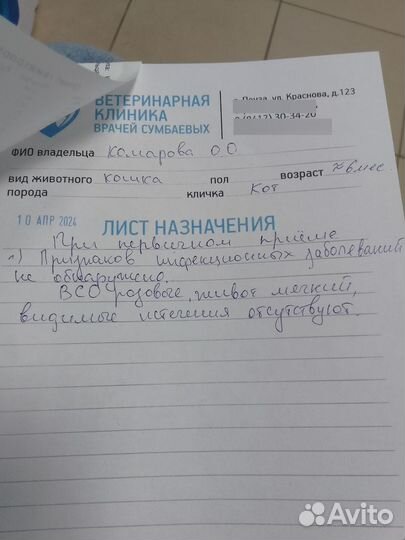 ВЕТЕРИНАРНАЯ
КЛИНИКА
ВРАЧЕЙ СУМБАЕВЫХ
г. Пенза, ул. Краснова, д.123
30-34-20
ФИО владельца Комарова О О
вид животного кошка пол возраст ≈6 мес.
порода кличка Кот
10 АПР 2024
ЛИСТ НАЗНАЧЕНИЯ
При первичном приёме
1) Признаков инфекционных заболеваний
не обнаружено.
ВСО розовые, живот мягкий,
видимые истечения отсутствуют.
Avito